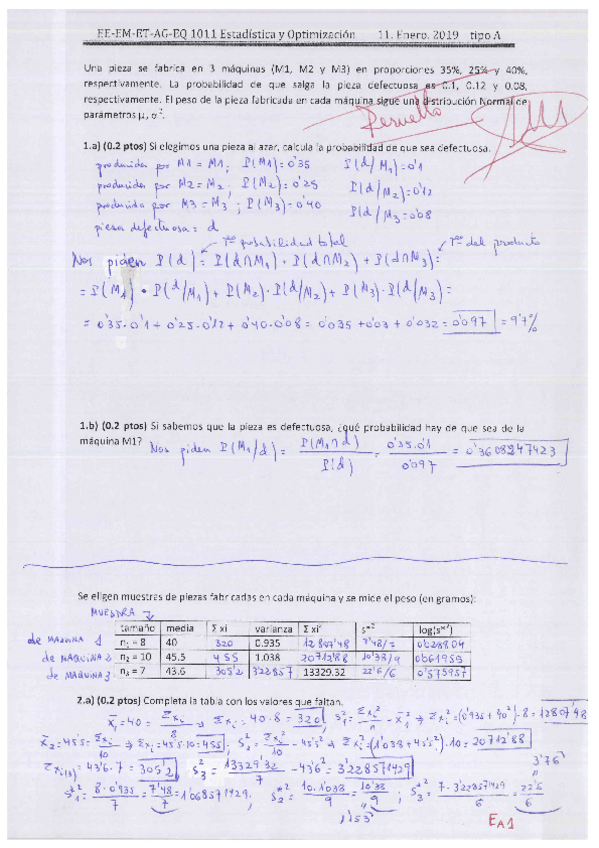 EE-EM-ET-AG-EQ 1011 Estadística y Optimización 11. Enero. 2019 tipo A
Una pieza se fabrica en 3 máquinas (M1, M2 y M3) en proporciones 35%, 25% y 40%,
respectivamente. La probabilidad de que salga la pieza defectuosa es 0.1, 0.12 y 0.08,
respectivamente. El peso de la pieza fabricada en cada máquina sigue una distribución Normal de
parámetros μ, σ².
Resuelto
1.a) (0.2 ptos) Si elegimos una pieza al azar, calcula la probabilidad de que sea defectuosa.
producida por M1 = M₁; P(M₁) = 0'35 P(d/M₁) = 0'1
producida por M2 = M₂; P(M₂) = 0'25 P(d/M₂) = 0'12
producida por M3 = M₃; P(M₃) = 0'40 P(d/M₃) = 0'08
pieza defectuosa = d
Tª probabilidad total Tª del producto
Nos piden P(d) = P(d∩M₁) + P(d∩M₂) + P(d∩M₃) =
= P(M₁) · P(d/M₁) + P(M₂) · P(d/M₂) + P(M₃) · P(d/M₃) =
= 0'35·0'1 + 0'25·0'12 + 0'40·0'08 = 0'035 + 0'03 + 0'032 = 0'097 = 9'7%
1.b) (0.2 ptos) Si sabemos que la pieza es defectuosa, ¿qué probabilidad hay de que sea de la
máquina M1? Nos piden P(M₁/d) = P(M₁∩d) / P(d) = 0'35·0'1 / 0'097 = 0'3608247423
Se eligen muestras de piezas fabricadas en cada máquina y se mide el peso (en gramos):
MUESTRA
tamaño media Σ xi varianza Σ xi² s*² log(s*²)
de MAQUINA 1 n₁ = 8 40 320 0.935 12807'48 7'48/7 0'028804
de MAQUINA 2 n₂ = 10 45.5 455 1.038 20712'88 10'38/9 0'061953
de MAQUINA 3 n₃ = 7 43.6 305'2 3'22857 13329.32 22'6/6 0'575957
2.a) (0.2 ptos) Completa la tabla con los valores que faltan.
x̄₁ = 40 = Σxᵢ/8 → Σxᵢ = 40·8 = 320; s₁² = Σxᵢ²/n − x̄₁² → Σxᵢ² = (0'935 + 40²)·8 = 12807'48
x̄₂ = 45'5 = Σxᵢ/10 → Σxᵢ = 45'5·10 = 455; s₂² = Σxᵢ²/10 − 45'5² → Σxᵢ² = (1'038 + 45'5²)·10 = 20712'88
Σxᵢ₍₃₎ = 43'6·7 = 305'2; s₃² = 13329'32/7 − 43'6² = 3'228571429
s₁*² = 8·0'935/7 = 7'48/7 = 1'068571429; s₂*² = 10·1'038/9 = 10'38/9 = 1'153; s₃*² = 7·3'228571429/6 = 22'6/6 = 3'76
EA1